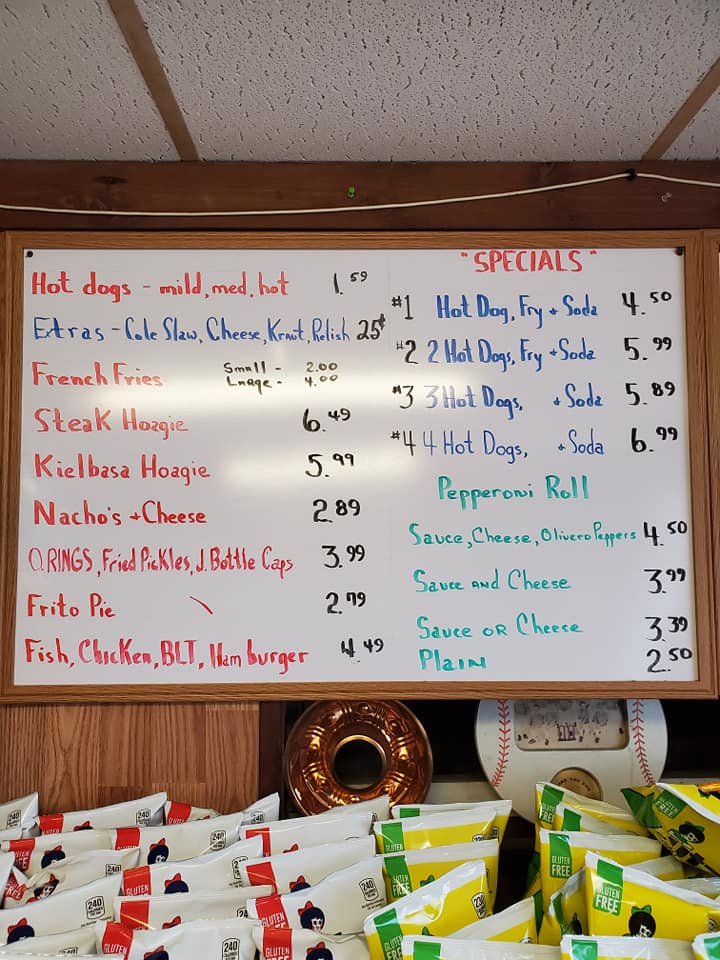 Hot dogs - mild, med, hot 1.59
Extras - Cole Slaw, Cheese, Kraut, Relish 25¢
French Fries Small - 2.00
Lnage - 4.00
Steak Hoagie 6.49
Kielbasa Hoagie 5.99
Nacho's + Cheese 2.89
O.RINGS, Fried Pickles, J. Bottle Caps 3.99
Frito Pie 2.79
Fish, Chicken, BLT, Ham burger 4.49
"SPECIALS"
#1 Hot Dog, Fry + Soda 4.50
#2 2 Hot Dogs, Fry + Soda 5.99
#3 3 Hot Dogs, + Soda 5.89
#4 4 Hot Dogs, + Soda 6.99
Pepperoni Roll
Sauce, Cheese, Olivero Peppers 4.50
Sauce and Cheese 3.99
Sauce or Cheese 3.39
Plain 2.50
240
240
240
240
240
240
GLUTEN
GLUTEN
GLUTEN
GLUTEN
GLUTEN
GLUTEN
GLUTEN FREE
GLUTEN FREE
GLUTEN FREE
GLUTEN FREE